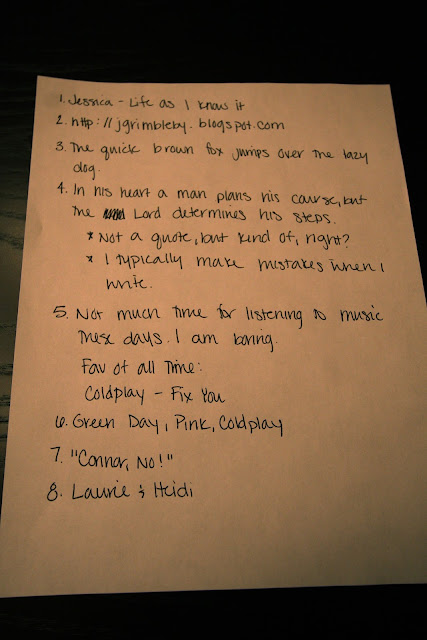 1. Jessica - Life as I know it
2. http://jgrimbleby.blogspot.com
3. The quick brown fox jumps over the lazy
dog.
4. In his heart a man plans his course, but
the Lord determines his steps.
* Not a quote, but kind of, right?
* I typically make mistakes when I
write.
5. Not much time for listening to music
these days. I am boring.
Fav of all Time:
Coldplay - Fix You
6. Green Day, Pink, Coldplay
7. "Connor, No!"
8. Laurie & Heidi